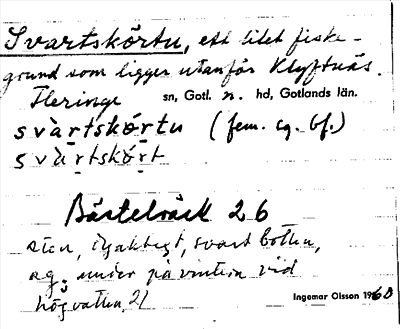 Svartskörtu, ett litet fiske-
grund som ligger utanför Klyftnäs.
Fleringe sn, Gotl. n. hd, Gotlands län.
svàrtskörtu (fem. sg. bf.)
svàrtskört
Bästelräck 26
sten, svart botten,
under på vintern vid
högvatten, 21
Ingemar Olsson 1960